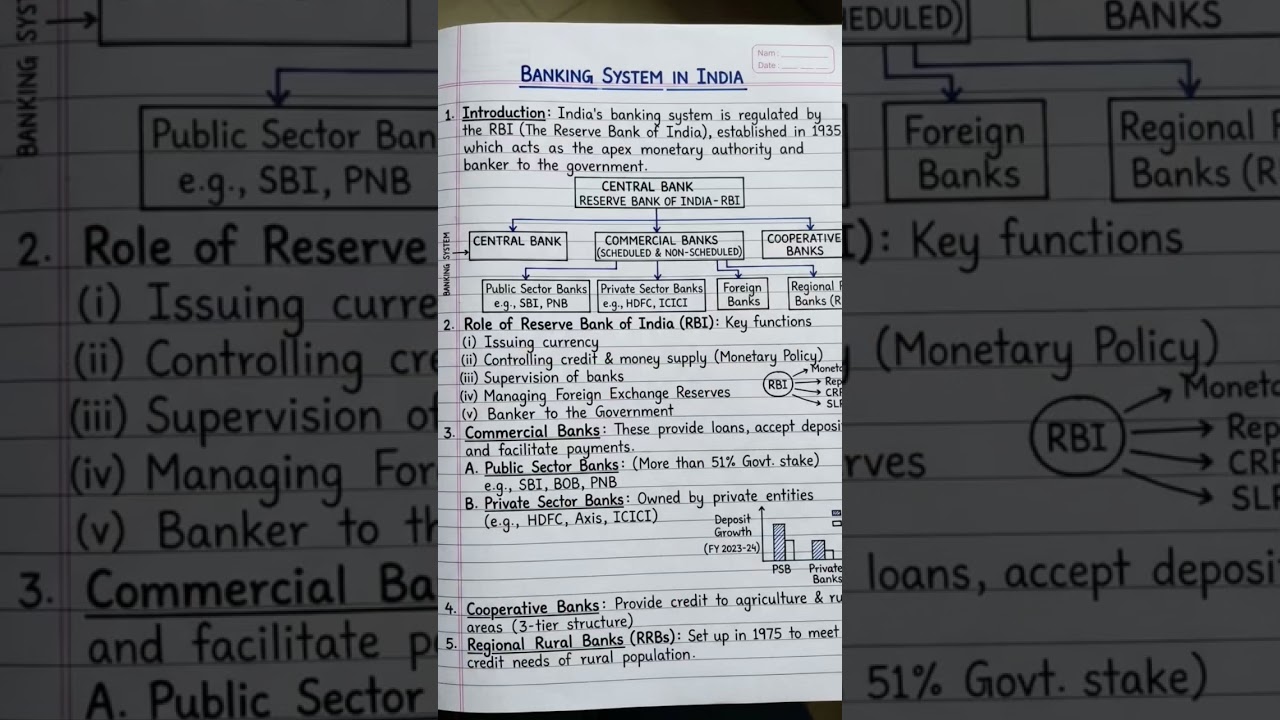 Nam:
Date:
BANKING SYSTEM IN INDIA
1. Introduction: India's banking system is regulated by
the RBI (The Reserve Bank of India), established in 1935
which acts as the apex monetary authority and
banker to the government.
CENTRAL BANK
RESERVE BANK OF INDIA-RBI
BANKING SYSTEM
CENTRAL BANK
COMMERCIAL BANKS
(SCHEDULED & NON-SCHEDULED)
COOPERATIVE
BANKS
Public Sector Banks
e.g., SBI, PNB
Private Sector Banks
e.g., HDFC, ICICI
Foreign
Banks
Regional R
Banks (R
2. Role of Reserve Bank of India (RBI): Key functions
(i) Issuing currency
(ii) Controlling credit & money supply (Monetary Policy)
(iii) Supervision of banks
(iv) Managing Foreign Exchange Reserves
(v) Banker to the Government
RBI
Moneta
Rep
CRR
SLR
3. Commercial Banks: These provide loans, accept deposi
and facilitate payments.
A. Public Sector Banks: (More than 51% Govt. stake)
e.g., SBI, BOB, PNB
B. Private Sector Banks: Owned by private entities
(e.g., HDFC, Axis, ICICI)
Deposit
Growth
(FY 2023-24)
PSB
Private
Banks
4. Cooperative Banks: Provide credit to agriculture & ru
areas (3-tier structure)
5. Regional Rural Banks (RRBs): Set up in 1975 to meet
credit needs of rural population.